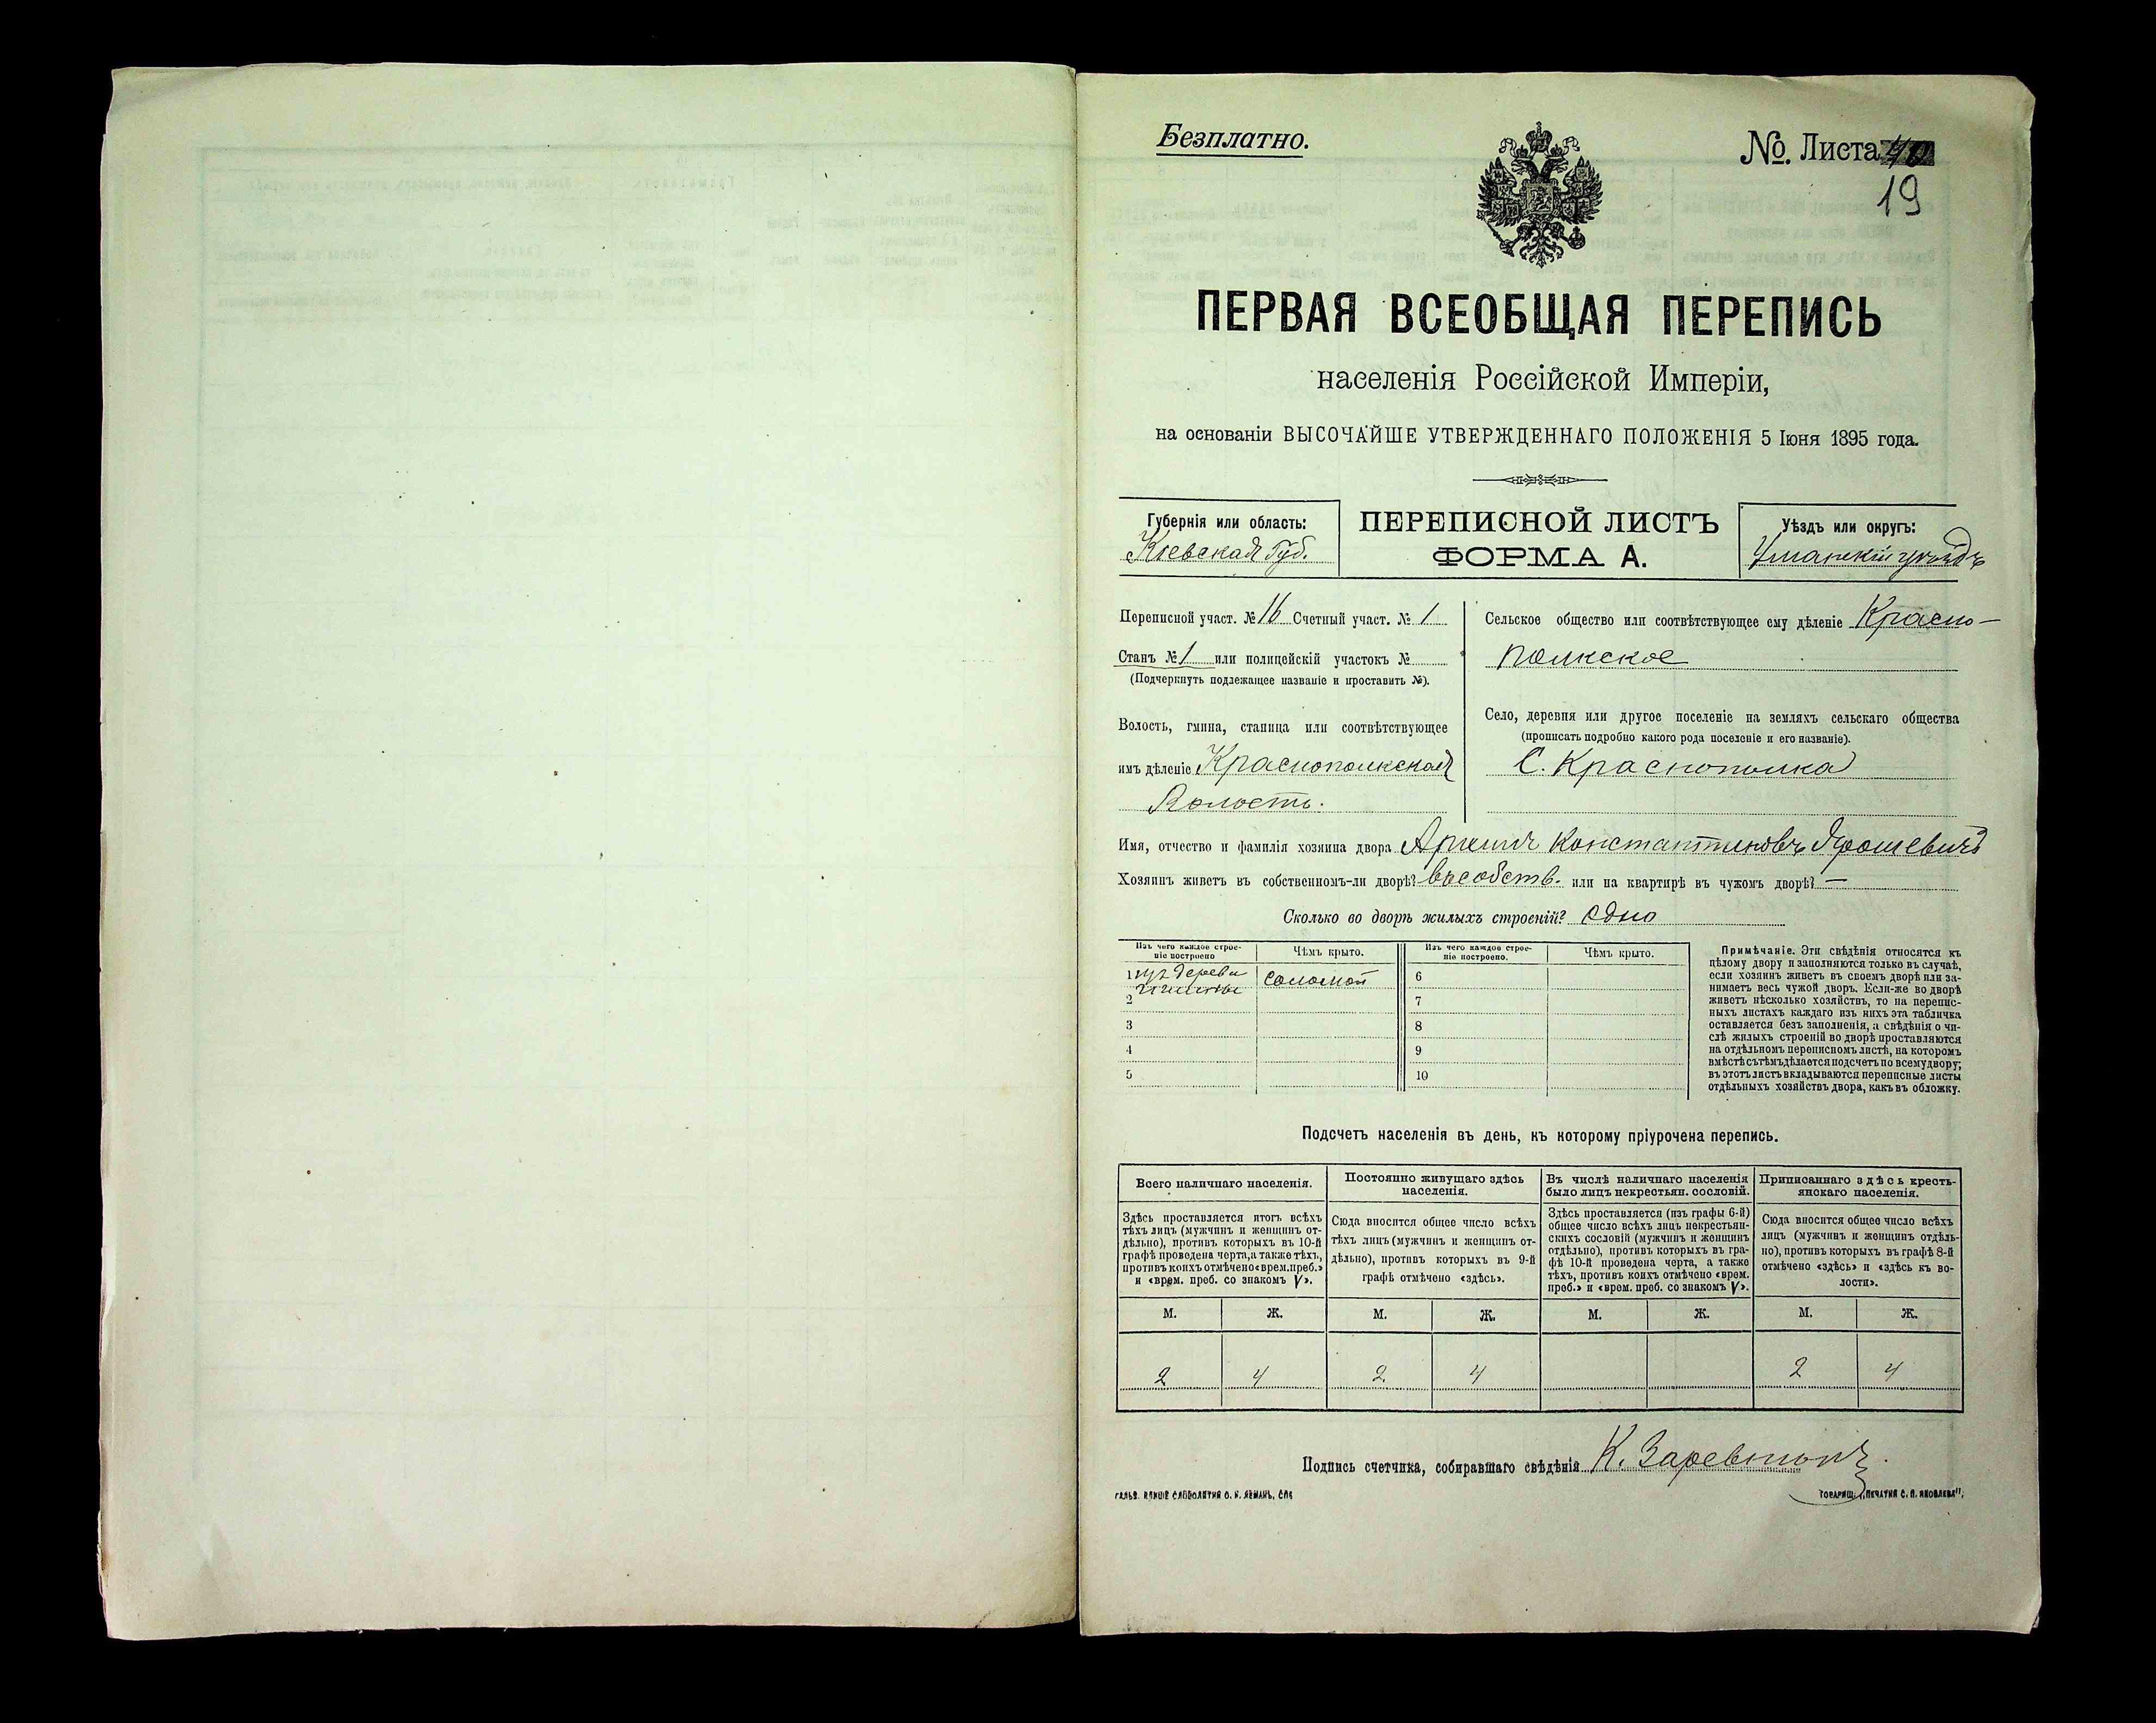 Безплатно.
№. Листа 40
19
ПЕРВАЯ ВСЕОБЩАЯ ПЕРЕПИСЬ
населенія Россійской Имперіи,
на основаніи ВЫСОЧАЙШЕ УТВЕРЖДЕННАГО ПОЛОЖЕНІЯ 5 Іюня 1895 года.
Губернія или область:
Кіевская Губ.
ПЕРЕПИСНОЙ ЛИСТЪ
ФОРМА А.
Уѣздъ или округъ:
Уманскій уѣздъ
Переписной участ. № 16 Счетный участ. № 1
Станъ № 1 или полицейскій участокъ №
(Подчеркнуть подлежащее названіе и проставить №).
Волость, гмина, станица или соотвѣтствующее
имъ дѣленіе Краснополкская
Волость.
Сельское общество или соотвѣтствующее ему дѣленіе Красно-
полкское
Село, деревня или другое поселеніе на земляхъ сельскаго общества
(прописать подробно какого рода поселеніе и его названіе).
С. Краснополка
Имя, отчество и фамилія хозяина двора Архипъ Константиновъ Ярошевичъ
Хозяинъ живетъ въ собственномъ-ли дворѣ? въ собств. или на квартирѣ въ чужомъ дворѣ? —
Сколько во дворѣ жилыхъ строеній? одно
Изъ чего каждое строе-
ніе построено
Чѣмъ крыто.
Изъ чего каждое строе-
ніе построено.
Чѣмъ крыто.
1 изъ дерева соломой
и глины
2
3
4
5
6
7
8
9
10
Примѣчаніе. Эти свѣдѣнія относятся къ
цѣлому двору и заполняются только въ случаѣ,
если хозяинъ живетъ въ своемъ дворѣ или за-
нимаетъ весь чужой дворъ. Если-же во дворѣ
живетъ нѣсколько хозяйствъ, то на перепис-
ныхъ листахъ каждаго изъ нихъ эта табличка
оставляется безъ заполненія, а свѣдѣнія о чи-
слѣ жилыхъ строеній во дворѣ проставляются
на отдѣльномъ переписномъ листѣ, на которомъ
вмѣстѣ съ тѣмъ дѣлается подсчетъ по всему двору;
въ этотъ листъ вкладываются переписные листы
отдѣльныхъ хозяйствъ двора, какъ въ обложку.
Подсчетъ населенія въ день, къ которому пріурочена перепись.
Всего наличнаго населенія.
Здѣсь проставляется итогъ всѣхъ
тѣхъ лицъ (мужчинъ и женщинъ от-
дѣльно), противъ которыхъ въ 10-й
графѣ проведена черта, а также тѣхъ,
противъ коихъ отмѣчено «врем. преб.»
и «врем. преб. со знакомъ V».
Постоянно живущаго здѣсь
населенія.
Сюда вносится общее число всѣхъ
тѣхъ лицъ (мужчинъ и женщинъ от-
дѣльно), противъ которыхъ въ 9-й
графѣ отмѣчено «здѣсь».
Въ числѣ наличнаго населенія
было лицъ некрестьян. сословій.
Здѣсь проставляется (изъ графы 6-й)
общее число всѣхъ лицъ некрестьян-
скихъ сословій (мужчинъ и женщинъ
отдѣльно), противъ которыхъ въ гра-
фѣ 10-й проведена черта, а также
тѣхъ, противъ коихъ отмѣчено «врем.
преб.» и «врем. преб. со знакомъ V».
Приписаннаго здѣсь кресть-
янскаго населенія.
Сюда вносится общее число всѣхъ
лицъ (мужчинъ и женщинъ отдѣль-
но), противъ которыхъ въ графѣ 8-й
отмѣчено «здѣсь» и «здѣсь къ во-
лости».
М. Ж. М. Ж. М. Ж. М. Ж.
2 4 2 4 2 4
Подпись счетчика, собиравшаго свѣдѣнія К.
ТОВАРИЩ. „ПЕЧАТНЯ С. П. ЯКОВЛЕВА“.